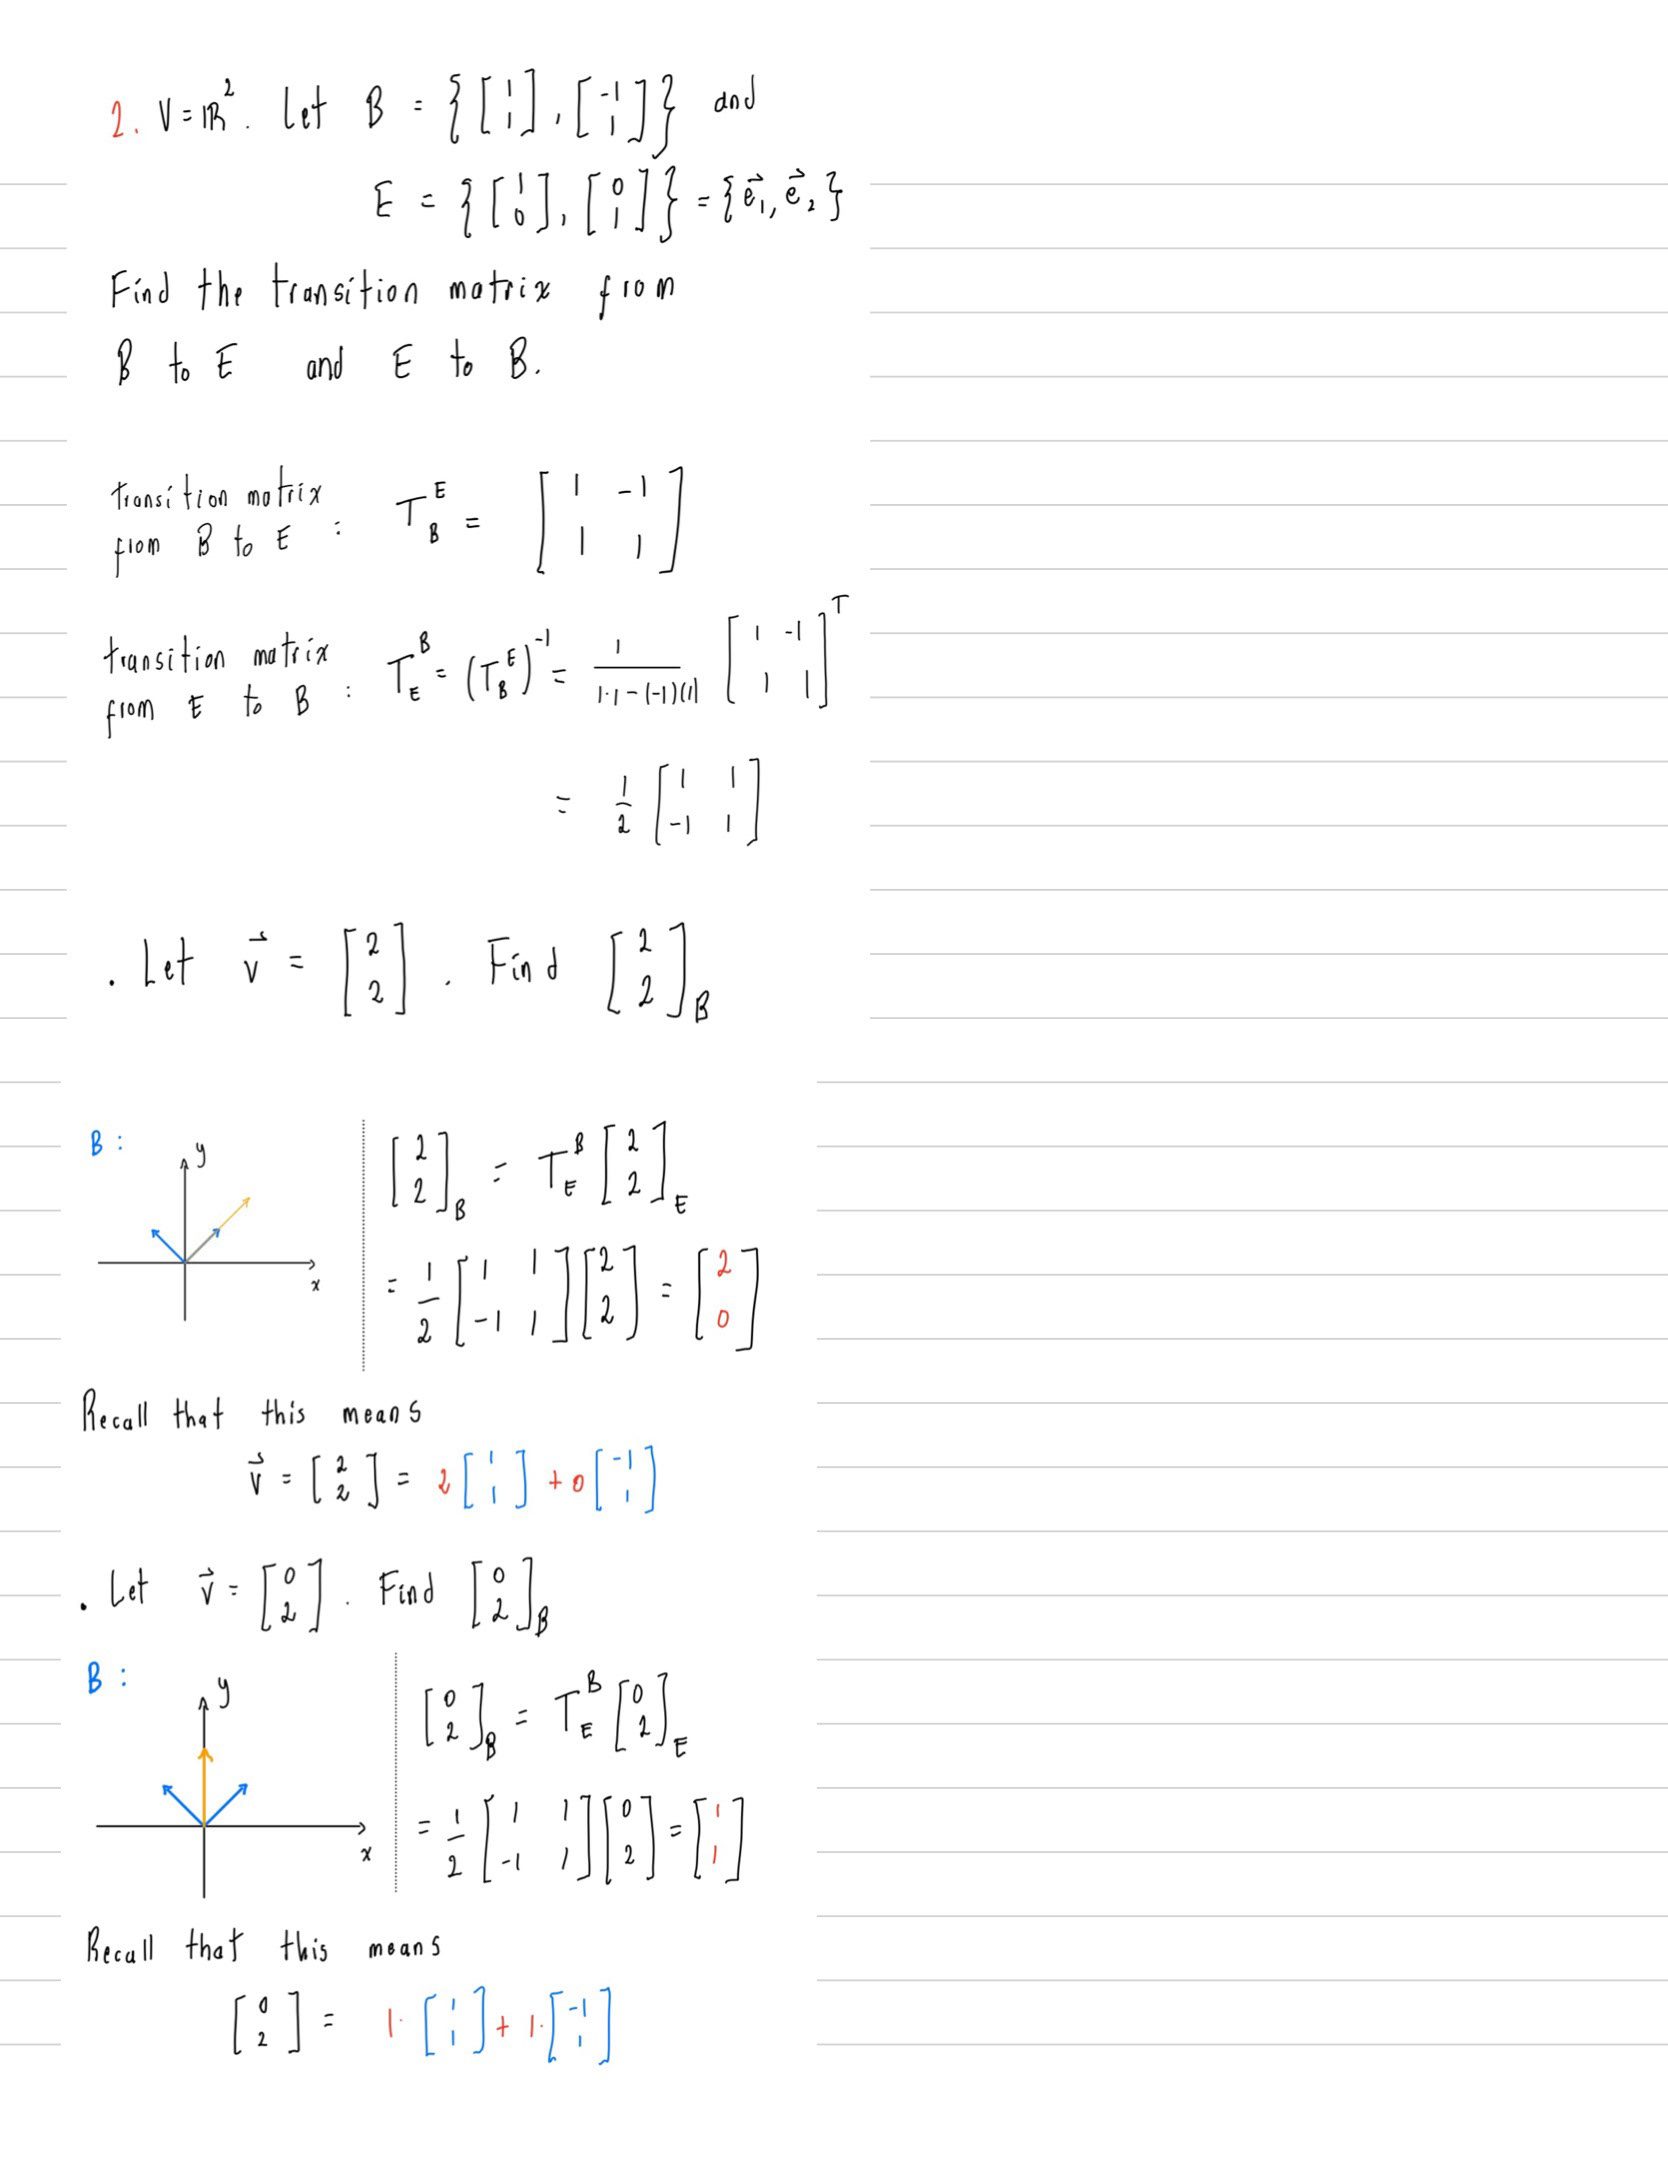 2. V = ℝ². Let B = {[1; 1], [-1; 1]} and
E = {[1; 0], [0; 1]} = {e⃗₁, e⃗₂}
Find the transition matrix from
B to E and E to B.
transition matrix
from B to E : T_B^E = [1 -1; 1 1]
transition matrix
from E to B : T_E^B = (T_B^E)^-1 = 1/(1·1-(-1)(1)) [1 -1; 1 1]^T
= 1/2 [1 1; -1 1]
. Let v⃗ = [2; 2]. Find [2; 2]_B
B :
y
x
[2; 2]_B = T_E^B [2; 2]_E
= 1/2 [1 1; -1 1] [2; 2] = [2; 0]
Recall that this means
v⃗ = [2; 2] = 2 [1; 1] + 0 [-1; 1]
. Let v⃗ = [0; 2]. Find [0; 2]_B
B :
y
x
[0; 2]_B = T_E^B [0; 2]_E
= 1/2 [1 1; -1 1] [0; 2] = [1; 1]
Recall that this means
[0; 2] = 1· [1; 1] + 1· [-1; 1]